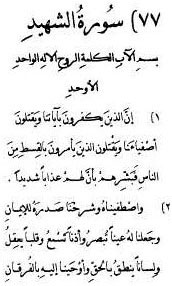 ٧٧) سُورَةُ الشَّهِيدِ
بِسمِ الآبِ الكلمةِ الروحِ الالهِ الواحدِ
الأوحدِ
١) إنَّ الَّذينَ يَكفرونَ بآياتنا ويَقتلونَ
أصفياءَنا ويَقتلون الَّذينَ يأمرونَ بالقسطِ منَ
الناسِ فبَشِّرهُم بأنَّ لهُم عذاباً شديداً.
٢) واصطفيناهُ وشرَحْنا صَدرَهُ للإيمانِ
وجعلنا لهُ عيناً تُبصرُ وأُذناً تَسمَعُ وقلباً يَعقِلُ
ولساناً يَنطقُ بالحقِّ وأوحَينا إليهِ بالفُرقانِ